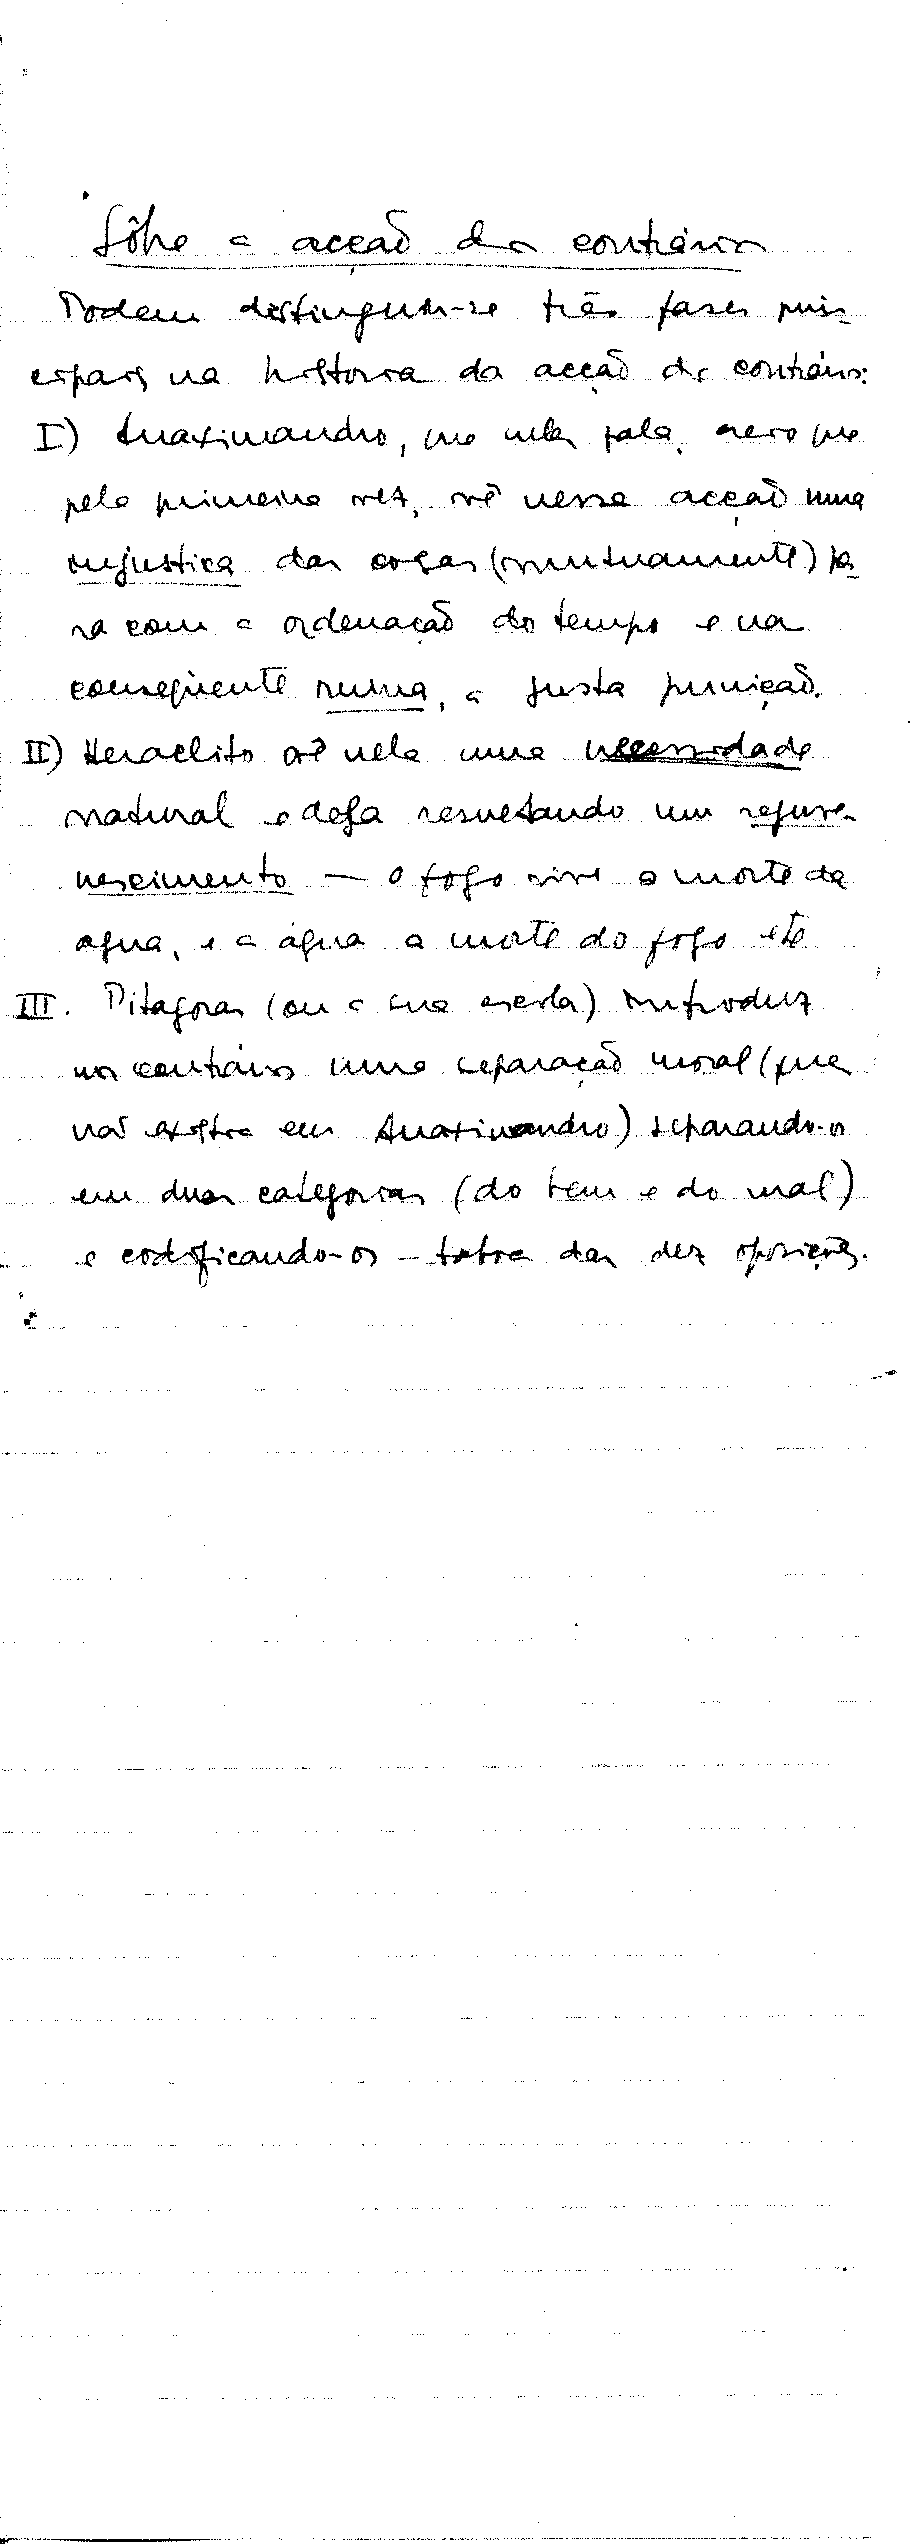 Sôbre a acção dos contrários
Podem distinguir-se três fases prin-
cipais na história da acção dos contrários:
I) Anaximandro, que neles fala, creio que
pela primeira vez, vê nessa acção uma
injustiça das coisas (mutuamente) pa-
ra com a ordenação do tempo e na
conseqüente ruina, a justa punição.
II) Heraclito vê nela uma necessidade
natural e dela resultando um rejuve-
nescimento — o fogo vive a morte da
água, e a água a morte do fogo etc
III. Pitagoras (ou a sua escola) introduz
nos contrários uma separação moral (que
não existia em Anaximandro) separando-os
em duas categorias (do bem e do mal)
e codificando-os – tabua das dez oposições.